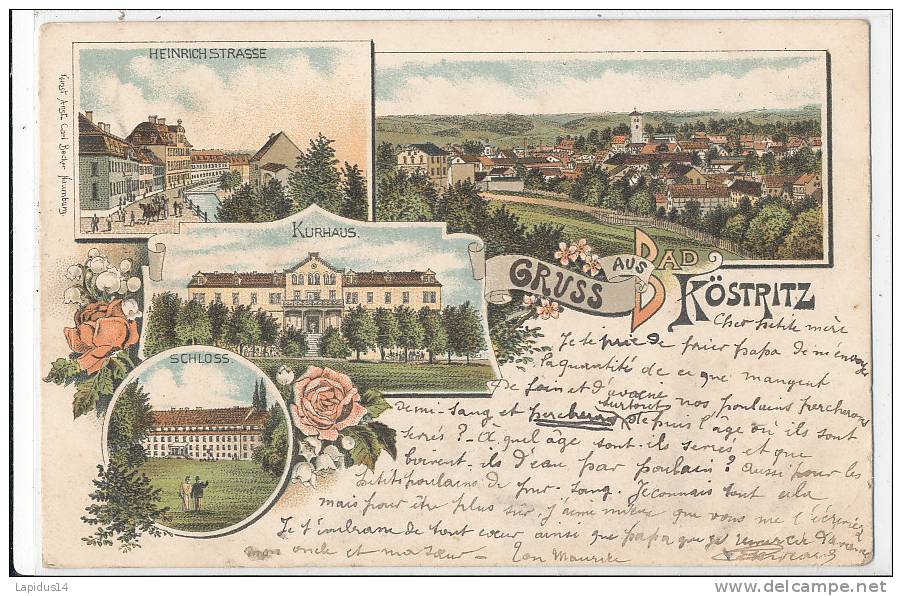 HEINRICHSTRASSE
Kunst Anst. Carl Becker Naumburg.
KURHAUS.
SCHLOSS.
GRUSS AUS BAD KÖSTRITZ
Cher petite mère
Je te prie de prier papa de m'envoyer
la quantité de ce que mangent
De foin et d'avoine surtout nos poulains percherons
demi-sang et percherons depuis l'age où ils sont
serés ? - À quel âge sont-ils serés et que
boivent-ils d'eau par poulain ? Aussi pour les
petits poulains de pur-sang. Je connais tout cela
mais pour être plus sûr, j'aime mieux que vous me l'écriviez
Je t'embrasse de tout cœur ainsi que papa que je remercie d'avance
mon oncle et ma sœur - Ton Maurice
Lapidus14
www.delcampe.net